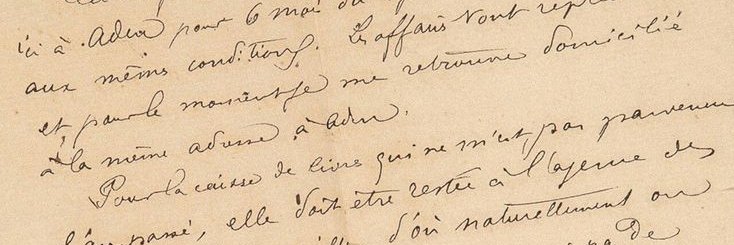 ici à Aden pour 6 mois du
aux mêmes conditions. Les affaires vont repre
et pour le moment je me retrouve domicilié
à la même adresse à Aden.
Pour la caisse de livres qui ne m'est pas parvenue
passé, elle doit être restée à l'agence des
d'où naturellement on
de